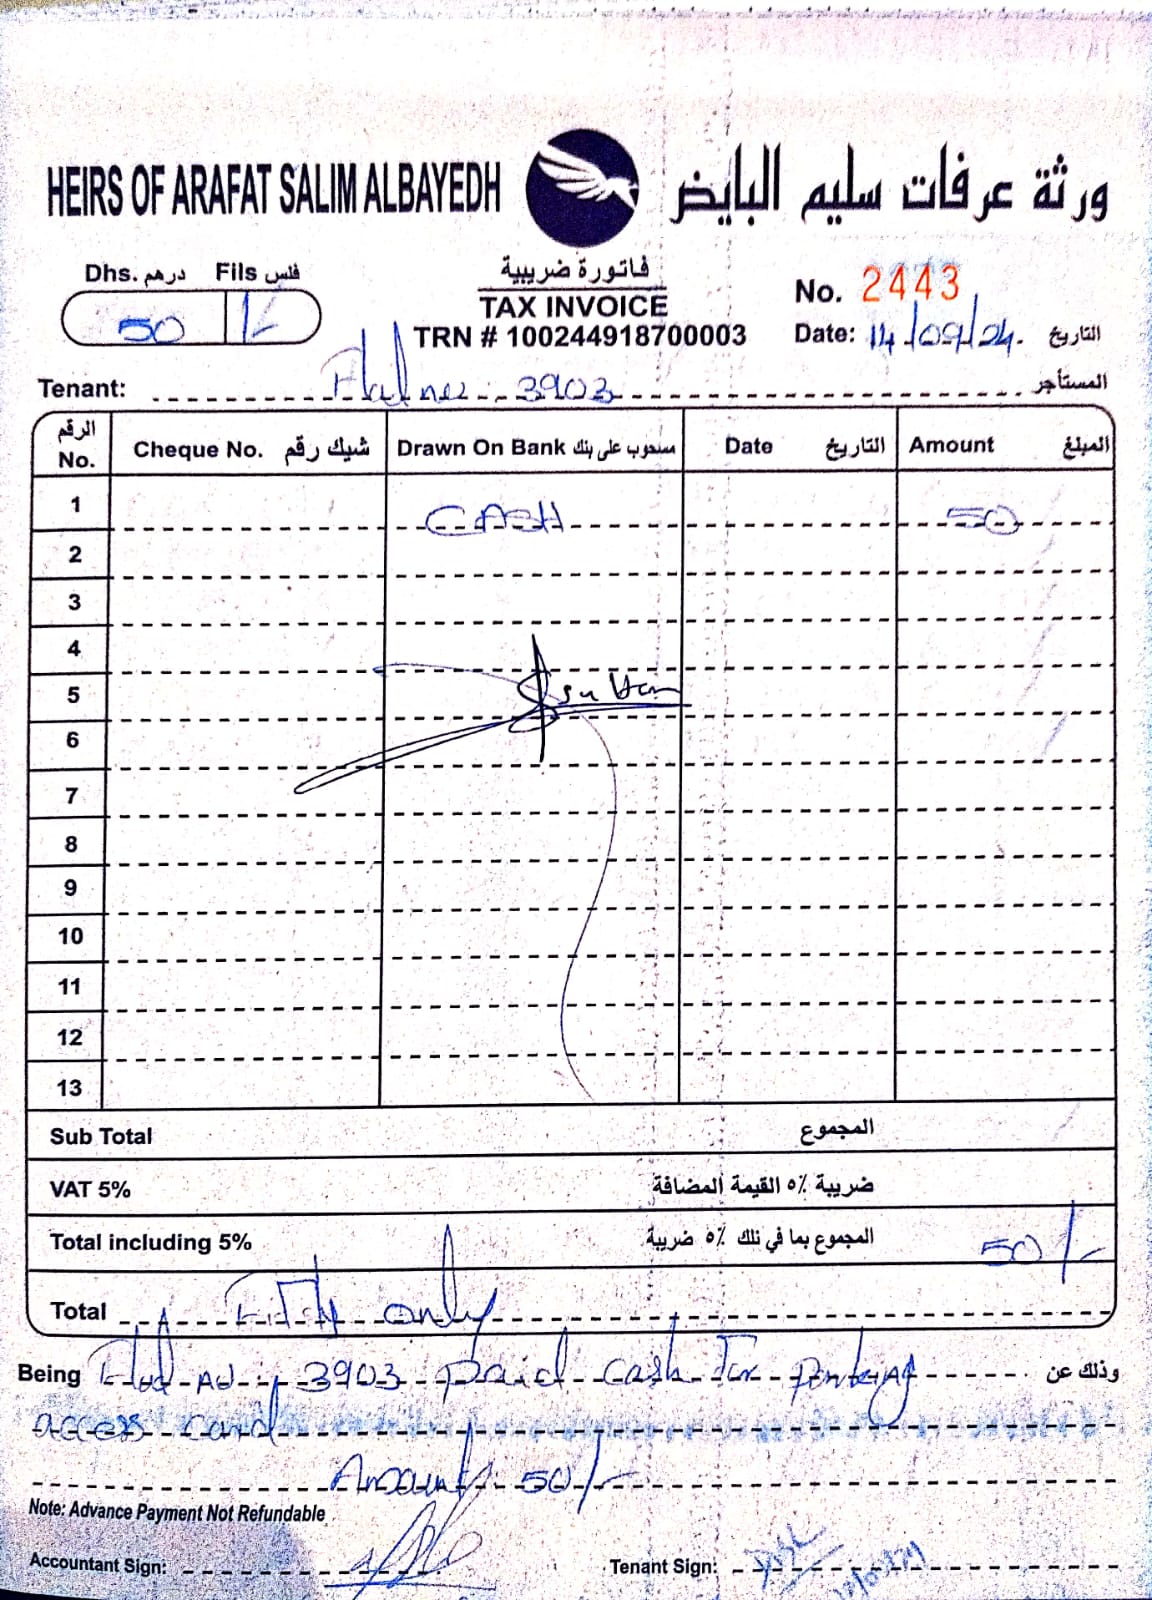 HEIRS OF ARAFAT SALIM ALBAYEDH
ورثة عرفات سليم البايض
Dhs. درهم Fils فلس
50 /-
فاتورة ضريبية
TAX INVOICE
TRN # 100244918700003
No. 2443
Date: 14/09/24. التاريخ
Tenant: Flat no: 3903 المستأجر
الرقم No. Cheque No. شيك رقم Drawn On Bank مسحوب على بنك Date التاريخ Amount المبلغ
1 CASH 50
2
3
4
5 Sultan
6
7
8
9
10
11
12
13
Sub Total المجموع
VAT 5% ضريبة ٥٪ القيمة المضافة
Total including 5% المجموع بما في ذلك ٥٪ ضريبة 50/-
Total Fifty only
Being Flat no: 3903 paid cash for وذلك عن
access card
Amount: 50/-
Note: Advance Payment Not Refundable
Accountant Sign: Tenant Sign: